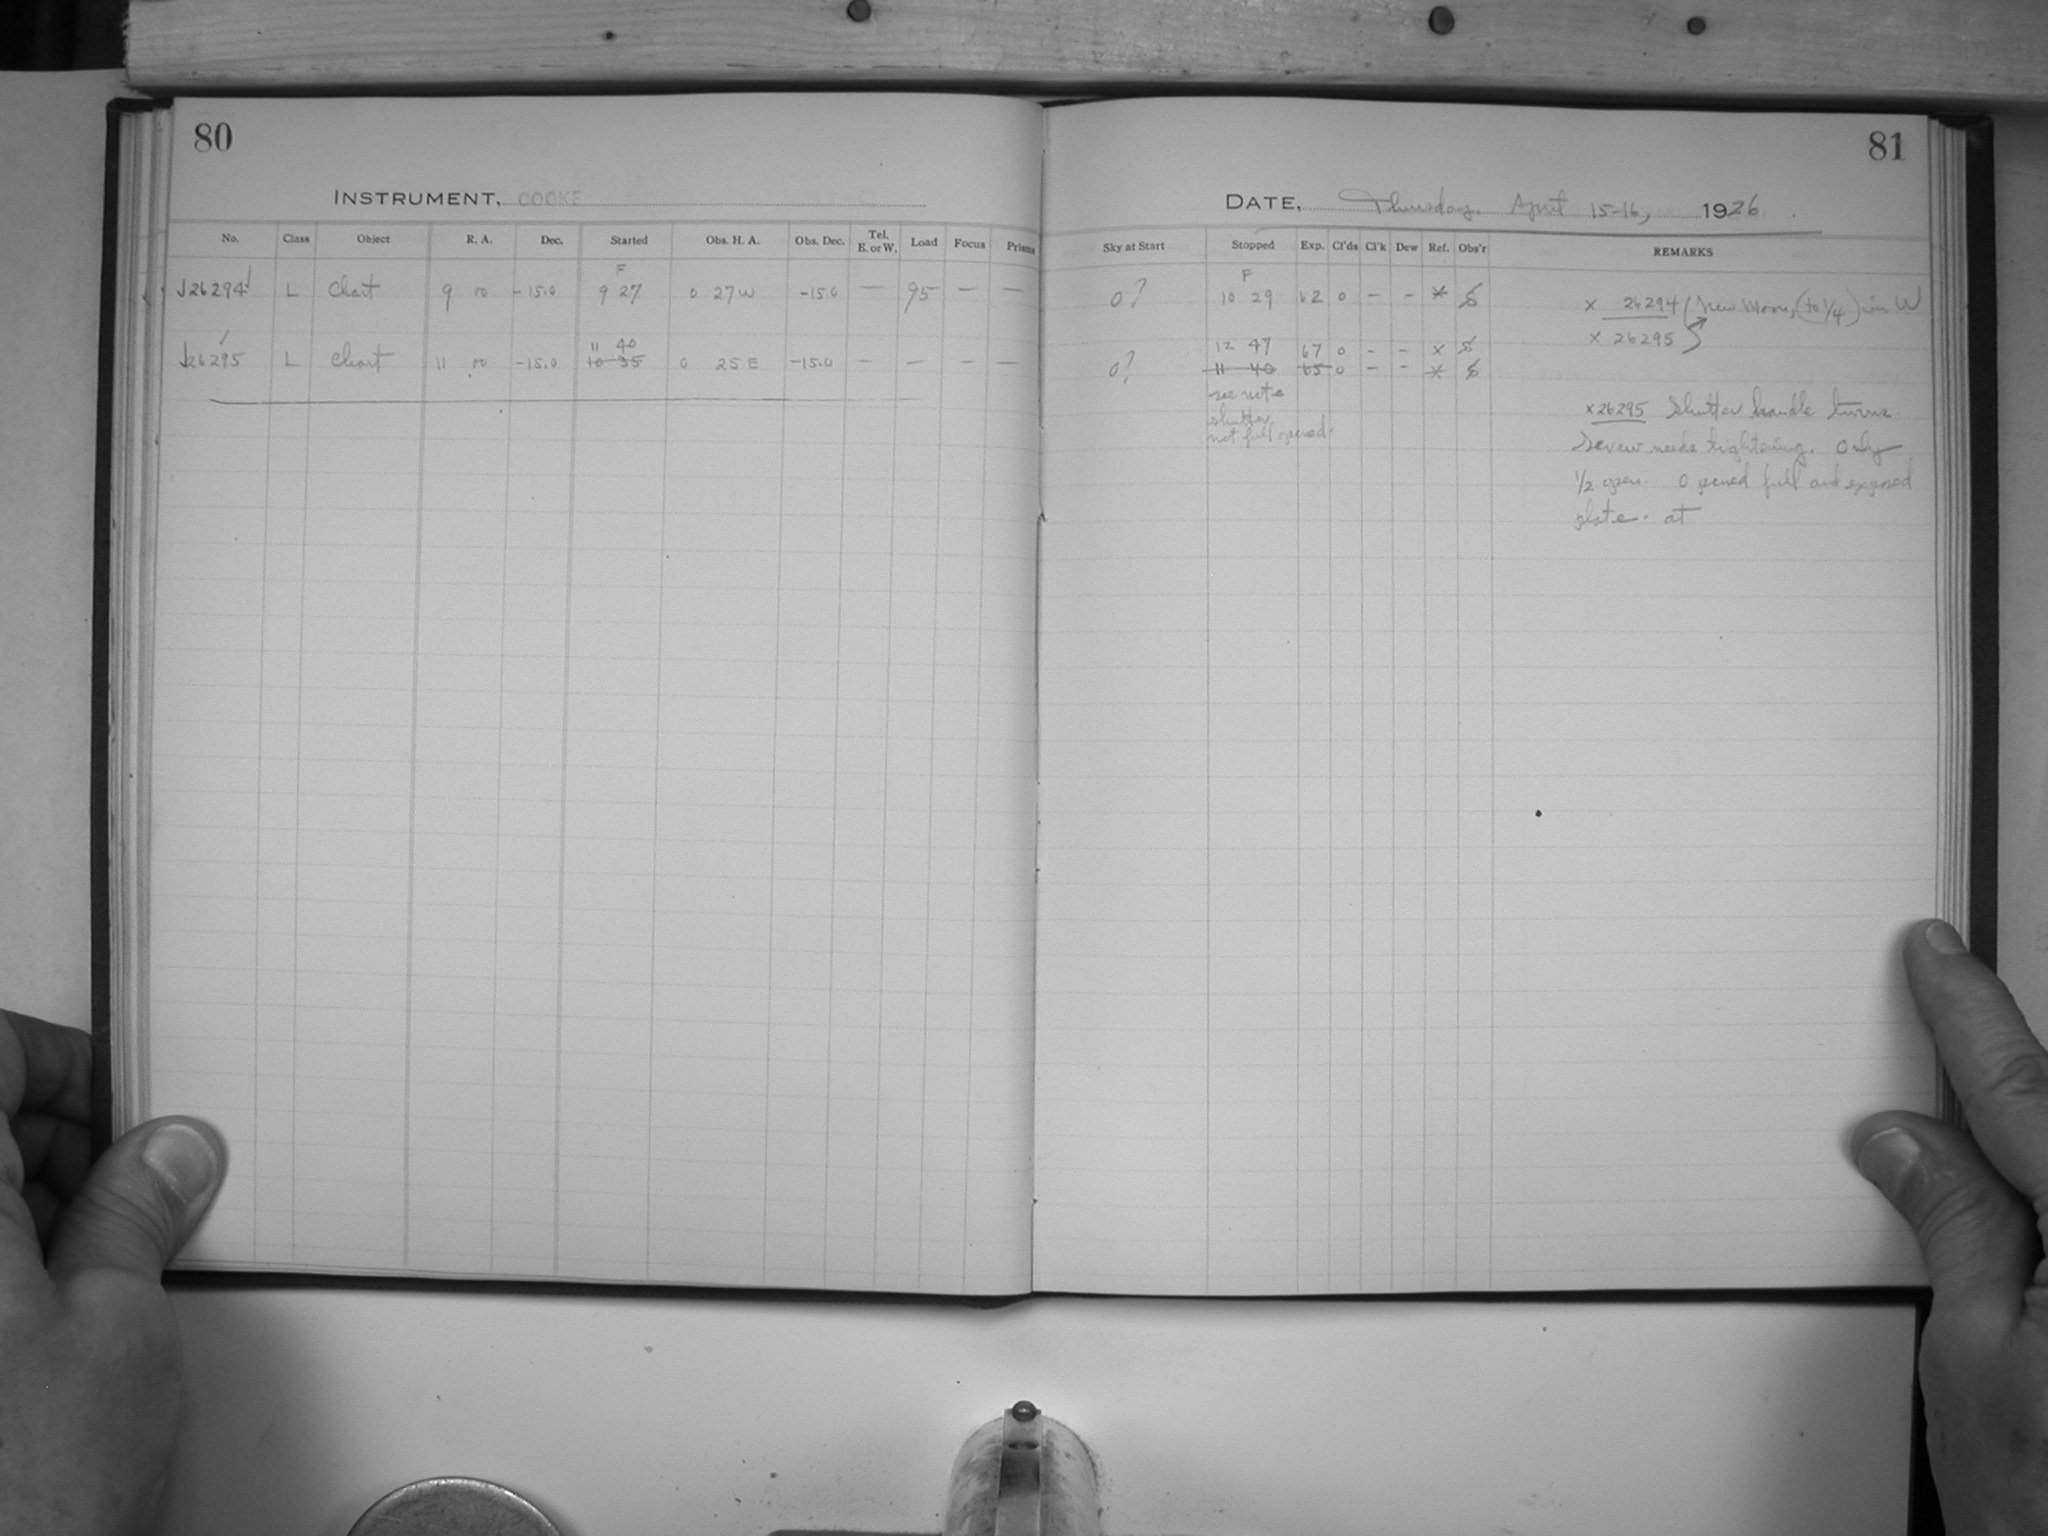 80
INSTRUMENT, COOKE
No. Class Object R. A. Dec. Started Obs. H. A. Obs. Dec. Tel. E. or W. Load Focus Prisms
F
26294 L Chart 9 00 -15.0 9 27 0 27 W -15.0 — 95 — —
11 40
26295 L Chart 11 00 -15.0 10 35 0 25 E -15.0 — — — —
81
DATE, Thursday. April 15-16, 1926
Sky at Start Stopped Exp. Cl'ds Cl'k Dew Ref. Obs'r REMARKS
F
0? 10 29 62 0 - - x
x 26294 (New Moon, (to 1/4) in W
12 47 67 0 - - x
x 26295
0? 11 40 65 0 - - x
see note
shutter
not full opened.
x 26295 Shutter handle turns.
Screw needs tightening. Only
1/2 open. Opened full and exposed
plate. at